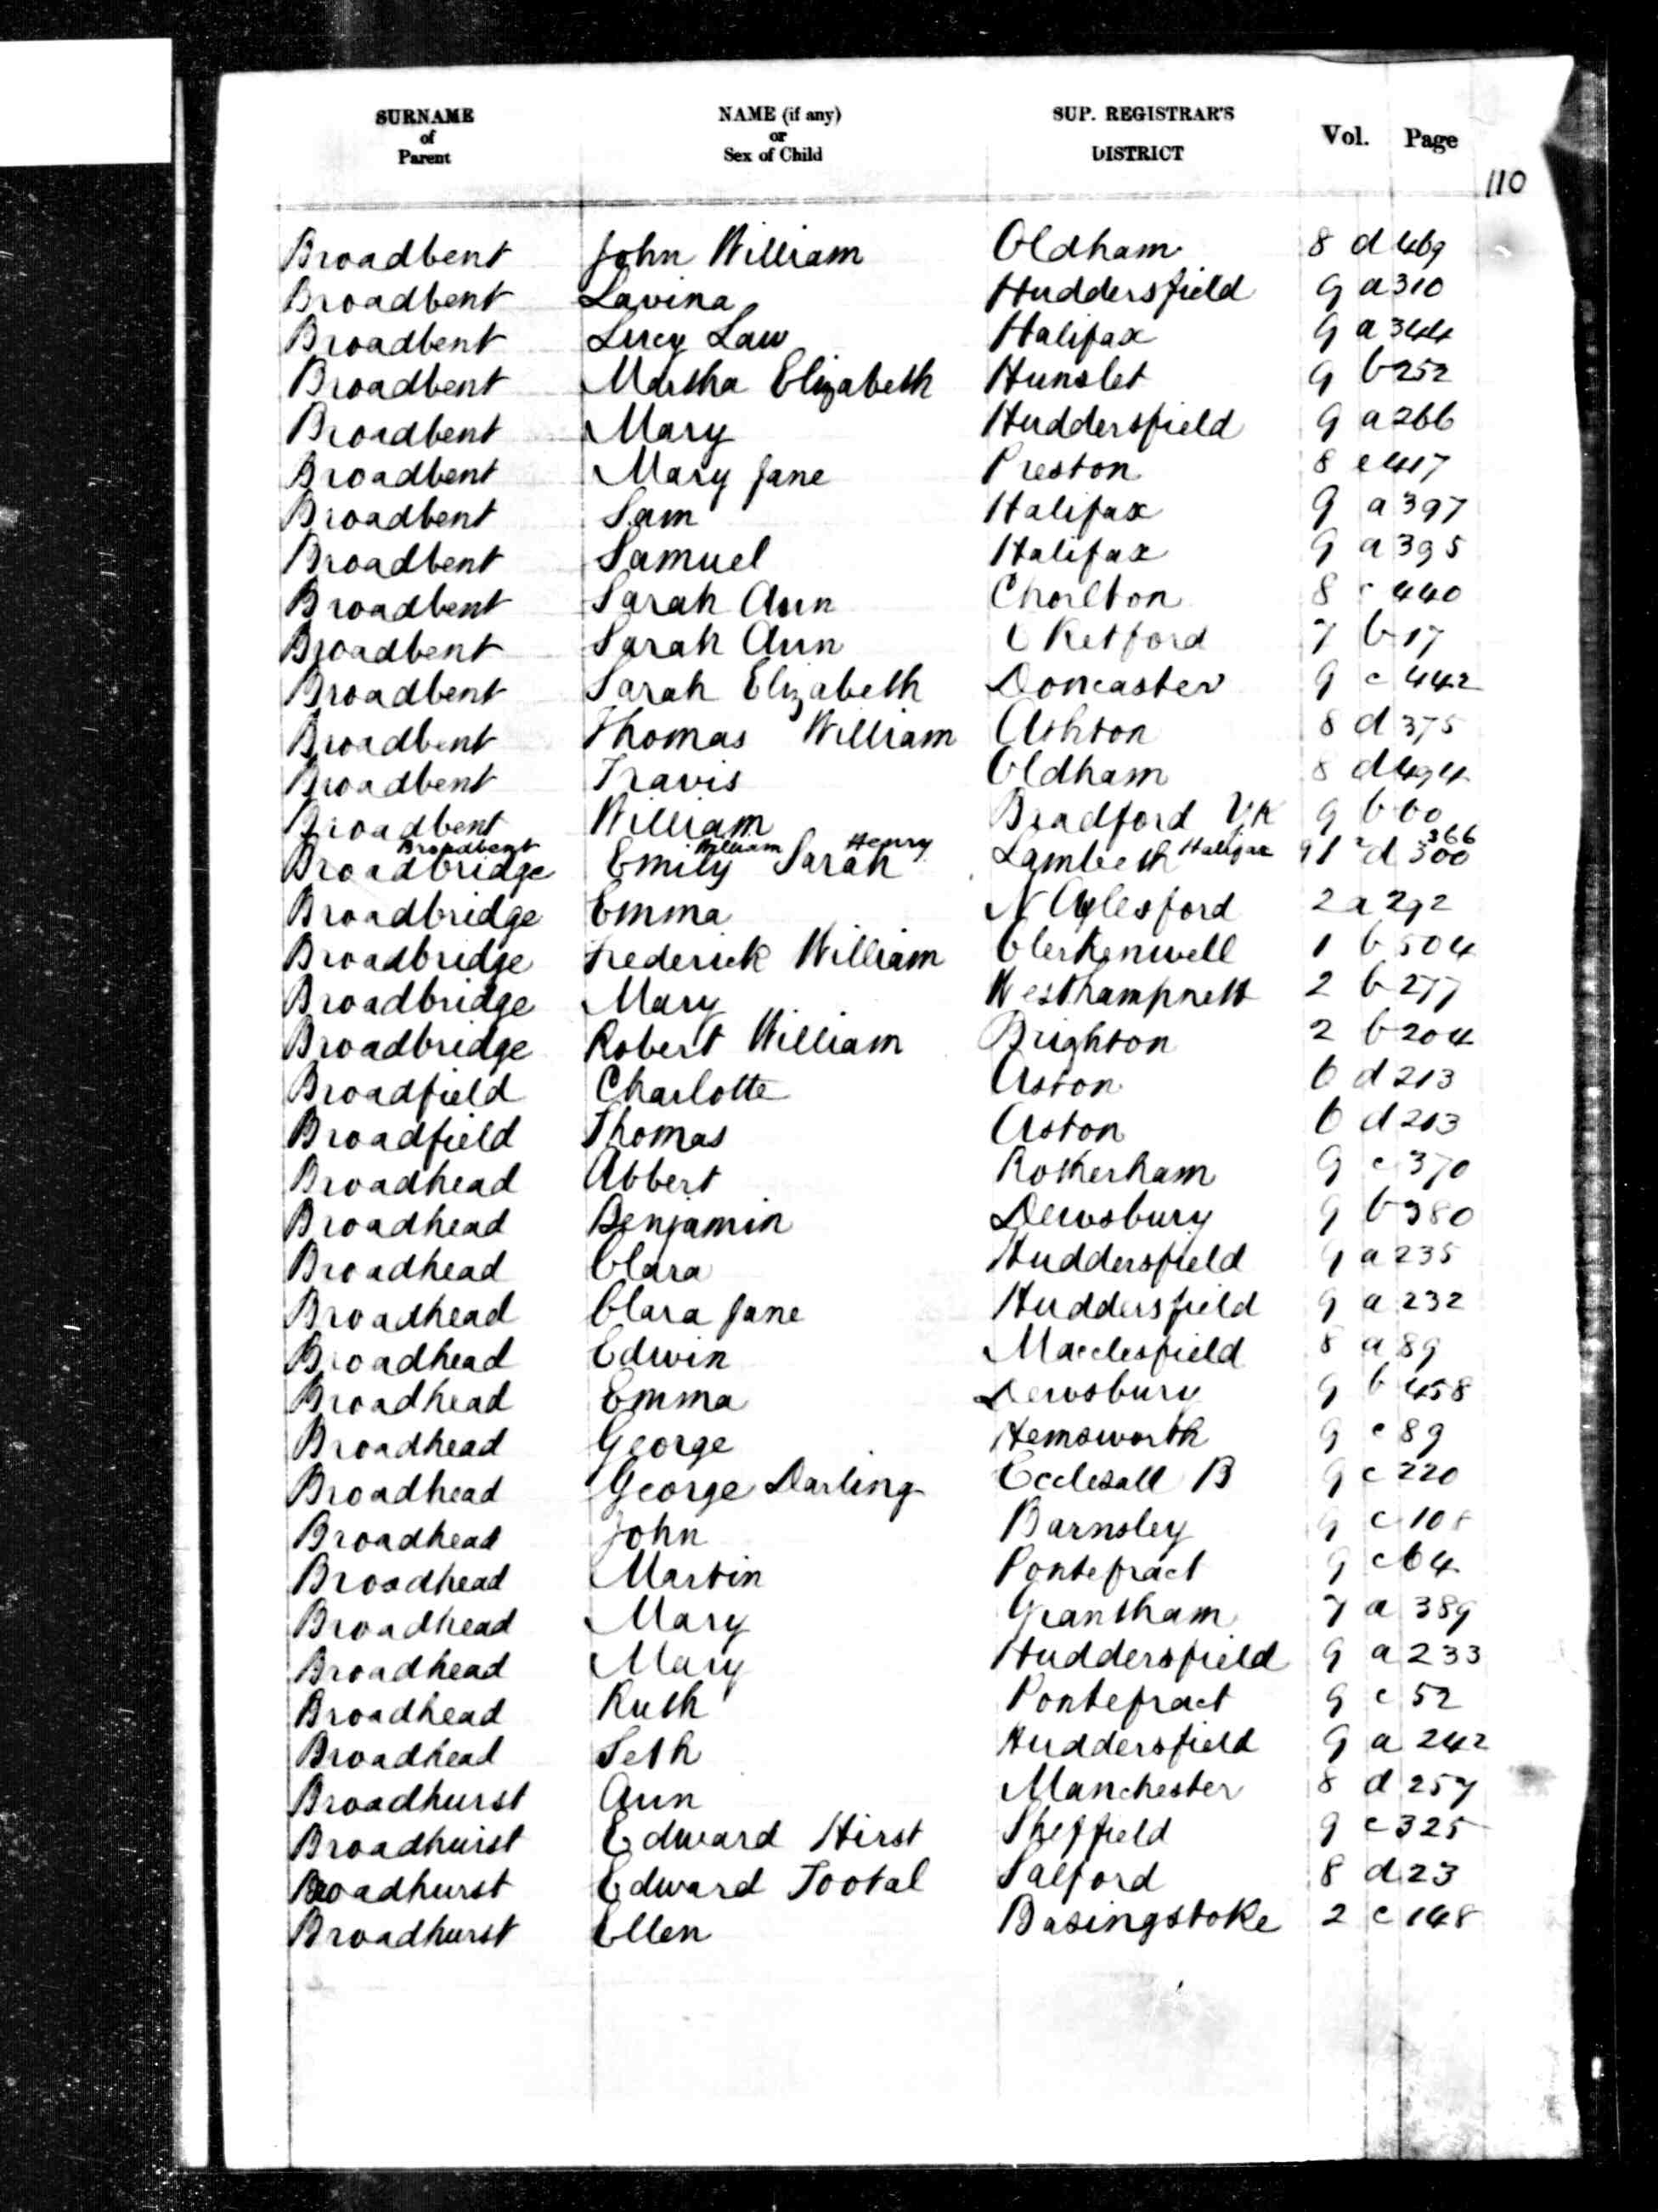 SURNAME of Parent NAME (if any) or Sex of Child SUP. REGISTRAR'S DISTRICT Vol. Page
110
Broadbent John William Oldham 8 d 469
Broadbent Lavina Huddersfield 9 a 310
Broadbent Lucy Law Halifax 9 a 344
Broadbent Martha Elizabeth Hunslet 9 b 252
Broadbent Mary Huddersfield 9 a 266
Broadbent Mary Jane Preston 8 e 417
Broadbent Sam Halifax 9 a 397
Broadbent Samuel Halifax 9 a 395
Broadbent Sarah Ann Chorlton 8 c 440
Broadbent Sarah Ann E Retford 7 b 17
Broadbent Sarah Elizabeth Doncaster 9 c 442
Broadbent Thomas William Ashton 8 d 375
Broadbent Travis Oldham 8 d 494
Broadbent William Bradford YK 9 b
Broadbent William Henry Halifax 9 a 366
Broadbridge Emily Sarah Lambeth 1 d 300
Broadbridge Emma N Aylesford 2 a 292
Broadbridge Frederick William Clerkenwell 1 b 504
Broadbridge Mary Westhampnett 2 b 277
Broadbridge Robert William Brighton 2 b 204
Broadfield Charlotte Aston 6 d 213
Broadfield Thomas Aston 6 d 213
Broadhead Abbert Rotherham 9 c 370
Broadhead Benjamin Dewsbury 9 b 380
Broadhead Clara Huddersfield 9 a 235
Broadhead Clara Jane Huddersfield 9 a 232
Broadhead Edwin Macclesfield 8 a 89
Broadhead Emma Dewsbury 9 b 458
Broadhead George Hemsworth 9 c 89
Broadhead George Darling Ecclesall B 9 c 220
Broadhead John Barnsley 9 c 108
Broadhead Martin Pontefract 9 c 64
Broadhead Mary Grantham 7 a 389
Broadhead Mary Huddersfield 9 a 233
Broadhead Ruth Pontefract 9 c 52
Broadhead Seth Huddersfield 9 a 242
Broadhurst Ann Manchester 8 d 257
Broadhurst Edward Hirst Sheffield 9 c 325
Broadhurst Edward Tootal Salford 8 d 23
Broadhurst Ellen Basingstoke 2 c 148